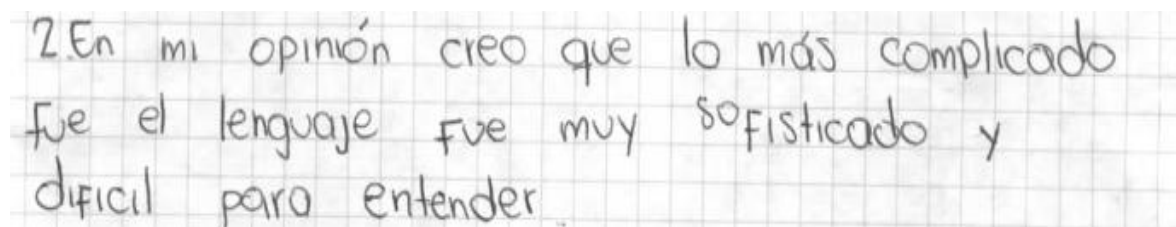 2.En mi opinión creo que lo más complicado
fue el lenguaje fue muy sofisticado y
dificil para entender.